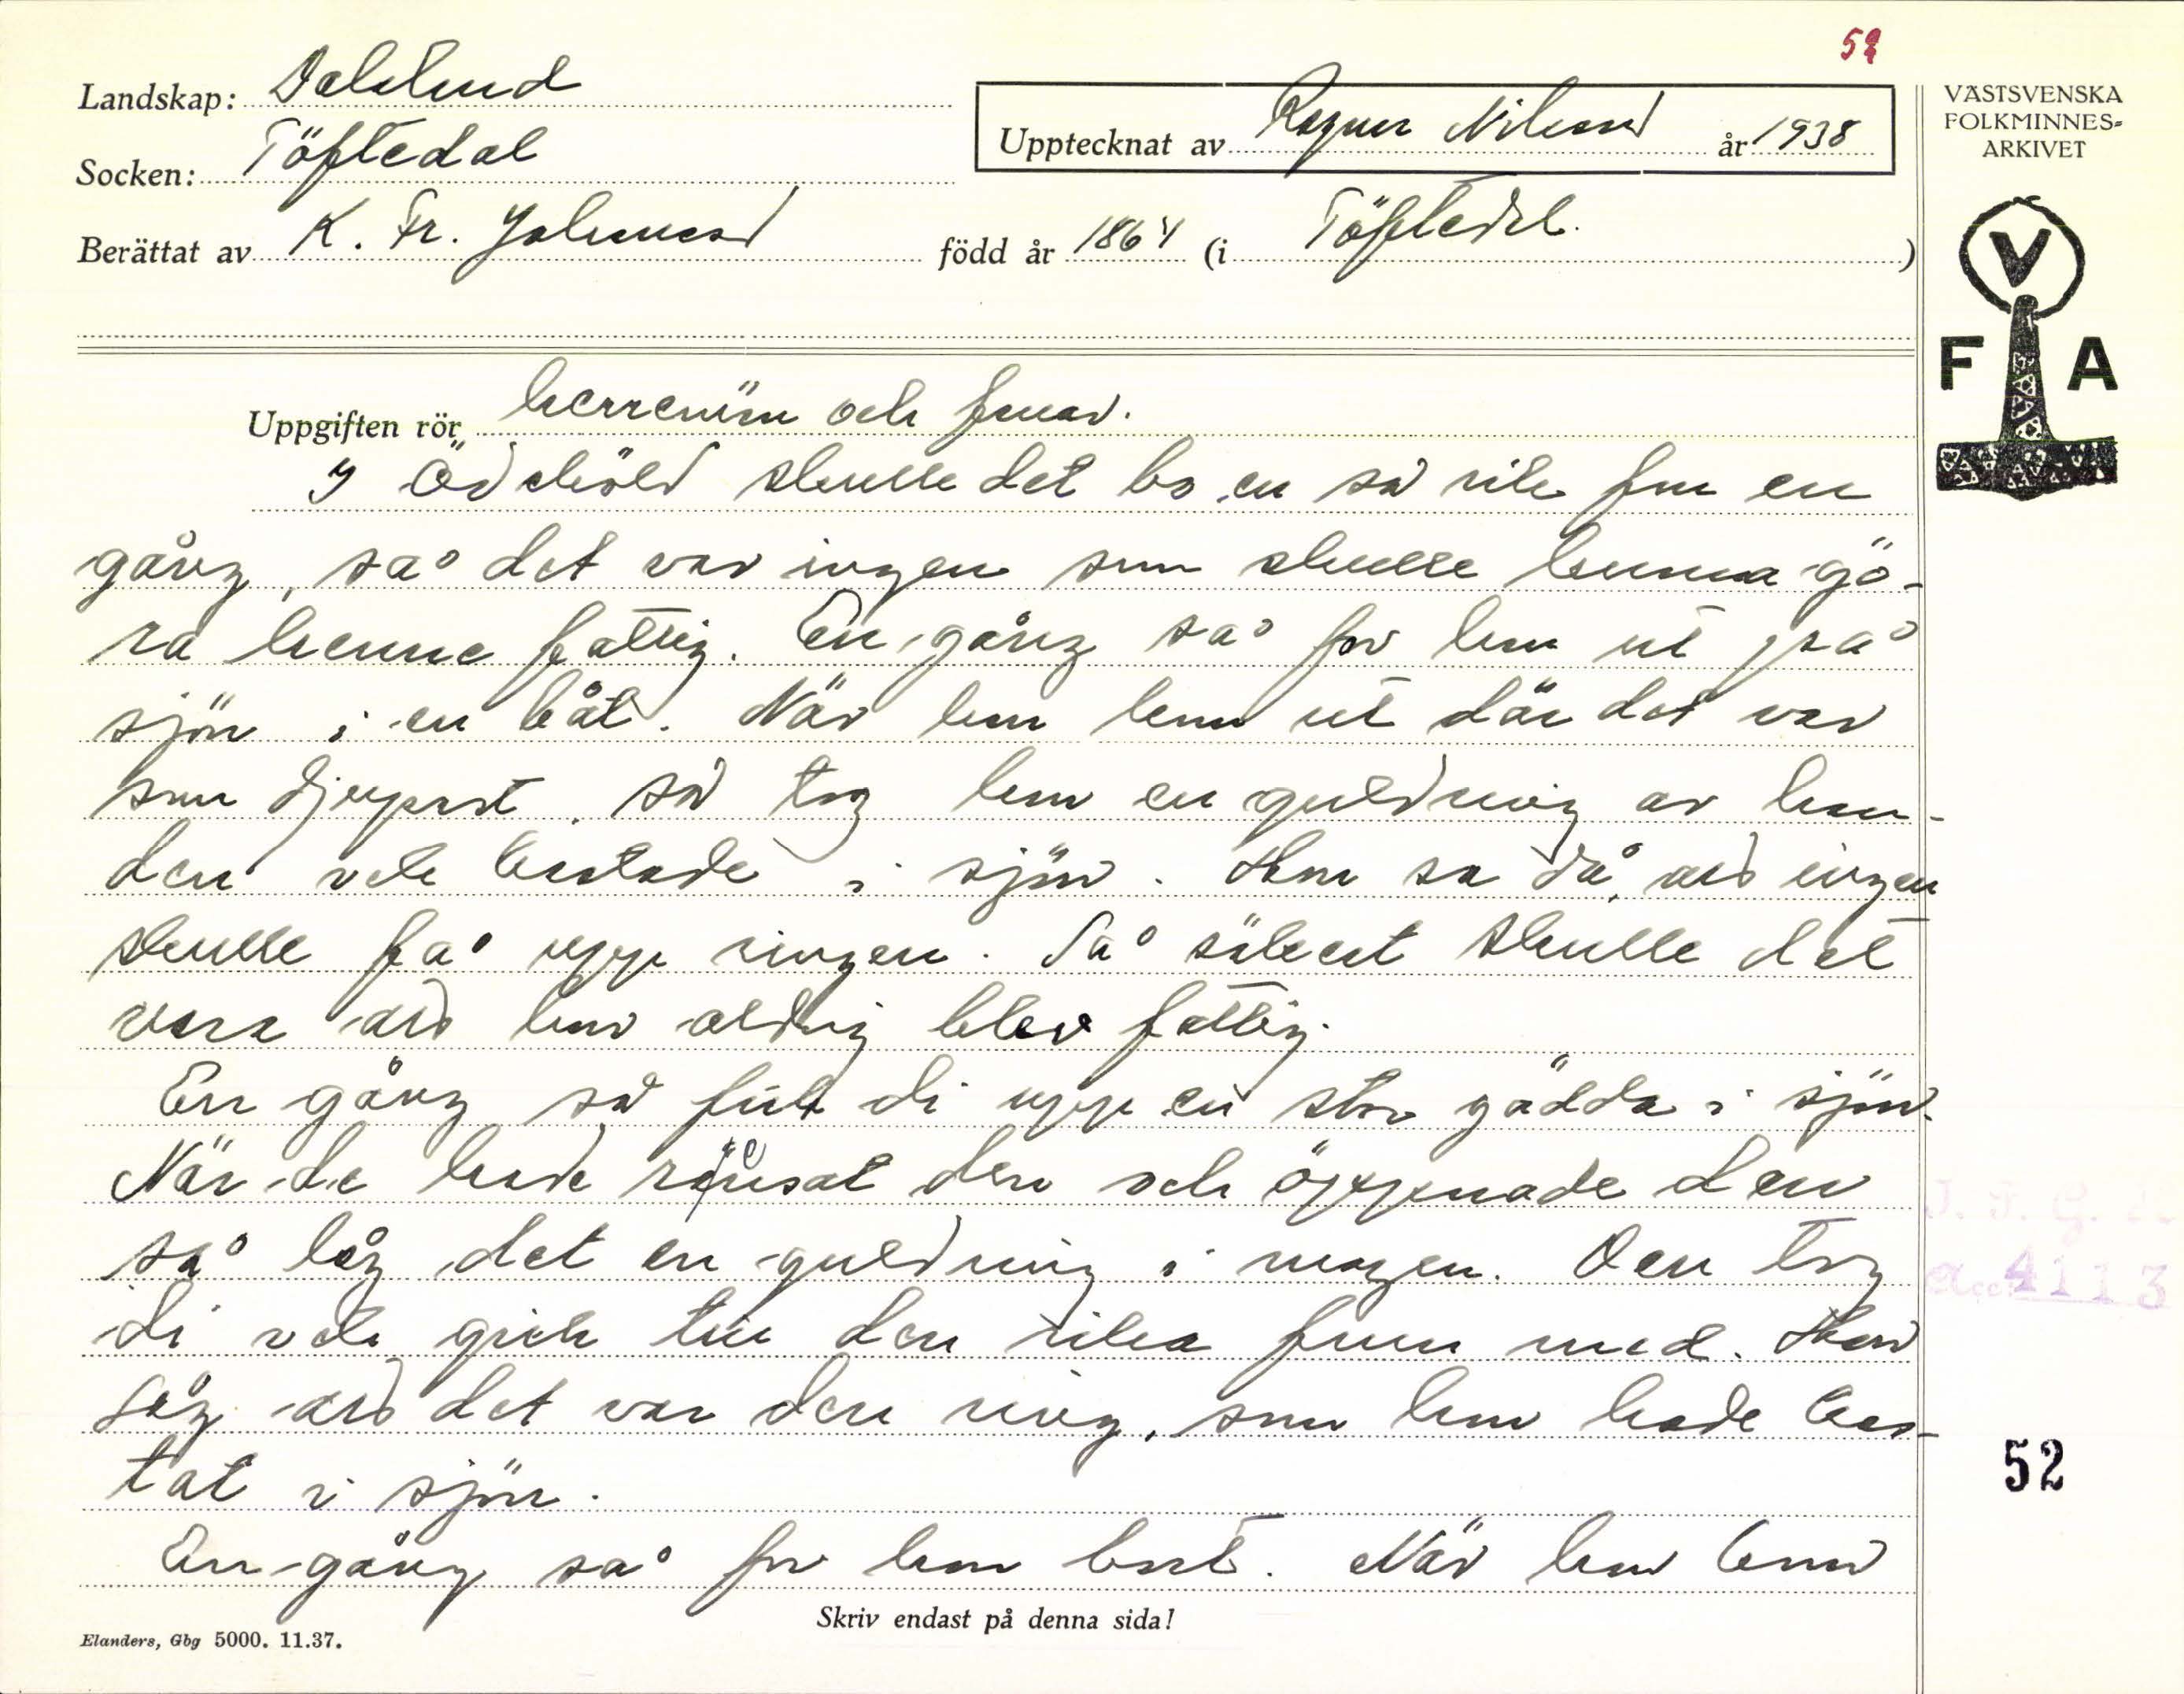 52
Landskap: Dalsland
Socken: Töftedal
Upptecknat av Ragnar Nilsson år 1938
Berättat av K. Fr. Johansson född år 1864 (i Töftedal.)
VÄSTSVENSKA
FOLKMINNES-
ARKIVET
V
F A
Uppgiften rör herremän och fruar.
I Ödsköld skulle det bo en så rik fru en
gång, så det var ingen som skulle kunna gö-
ra henne fattig. En gång så for hon ut på
sjön i en båt. När hon kom ut där det var
som djupast, så tog hon en guldring av han-
den och kastade i sjön. Hon sa då, att ingen
skulle få upp ringen. Så säkert skulle det
vara att hon aldrig blev fattig.
En gång så fick di upp en stor gädda i sjön.
När de hade rensat den och öppnade den
så låg det en guldring i magen. Den tog
di och gick till den rika frun med. Hon
såg att det var den ring, som hon hade kas-
tat i sjön.
En gång så for hon bort. När hon kom
Skriv endast på denna sida!
Elanders, Gbg 5000. 11.37.
acc 4113
52